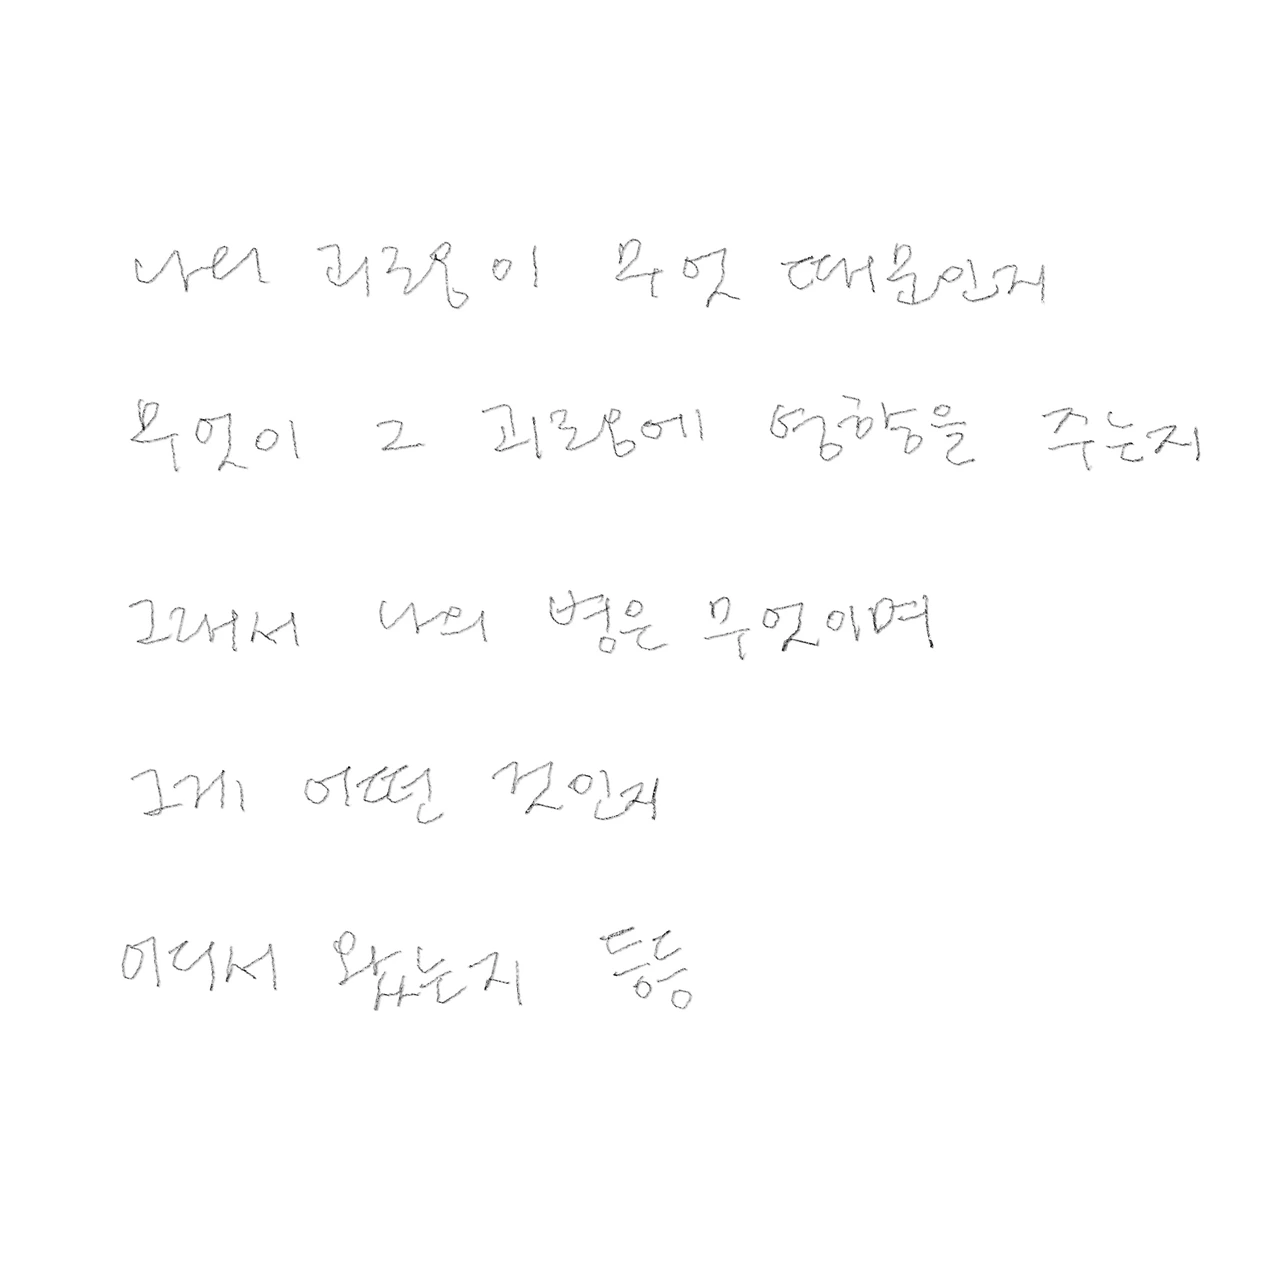 나의 괴로움이 무엇 때문인지
무엇이 그 괴로움에 영향을 주는지
그래서 나의 병은 무엇이며
그게 어떤 것인지
어디서 왔는지 등등